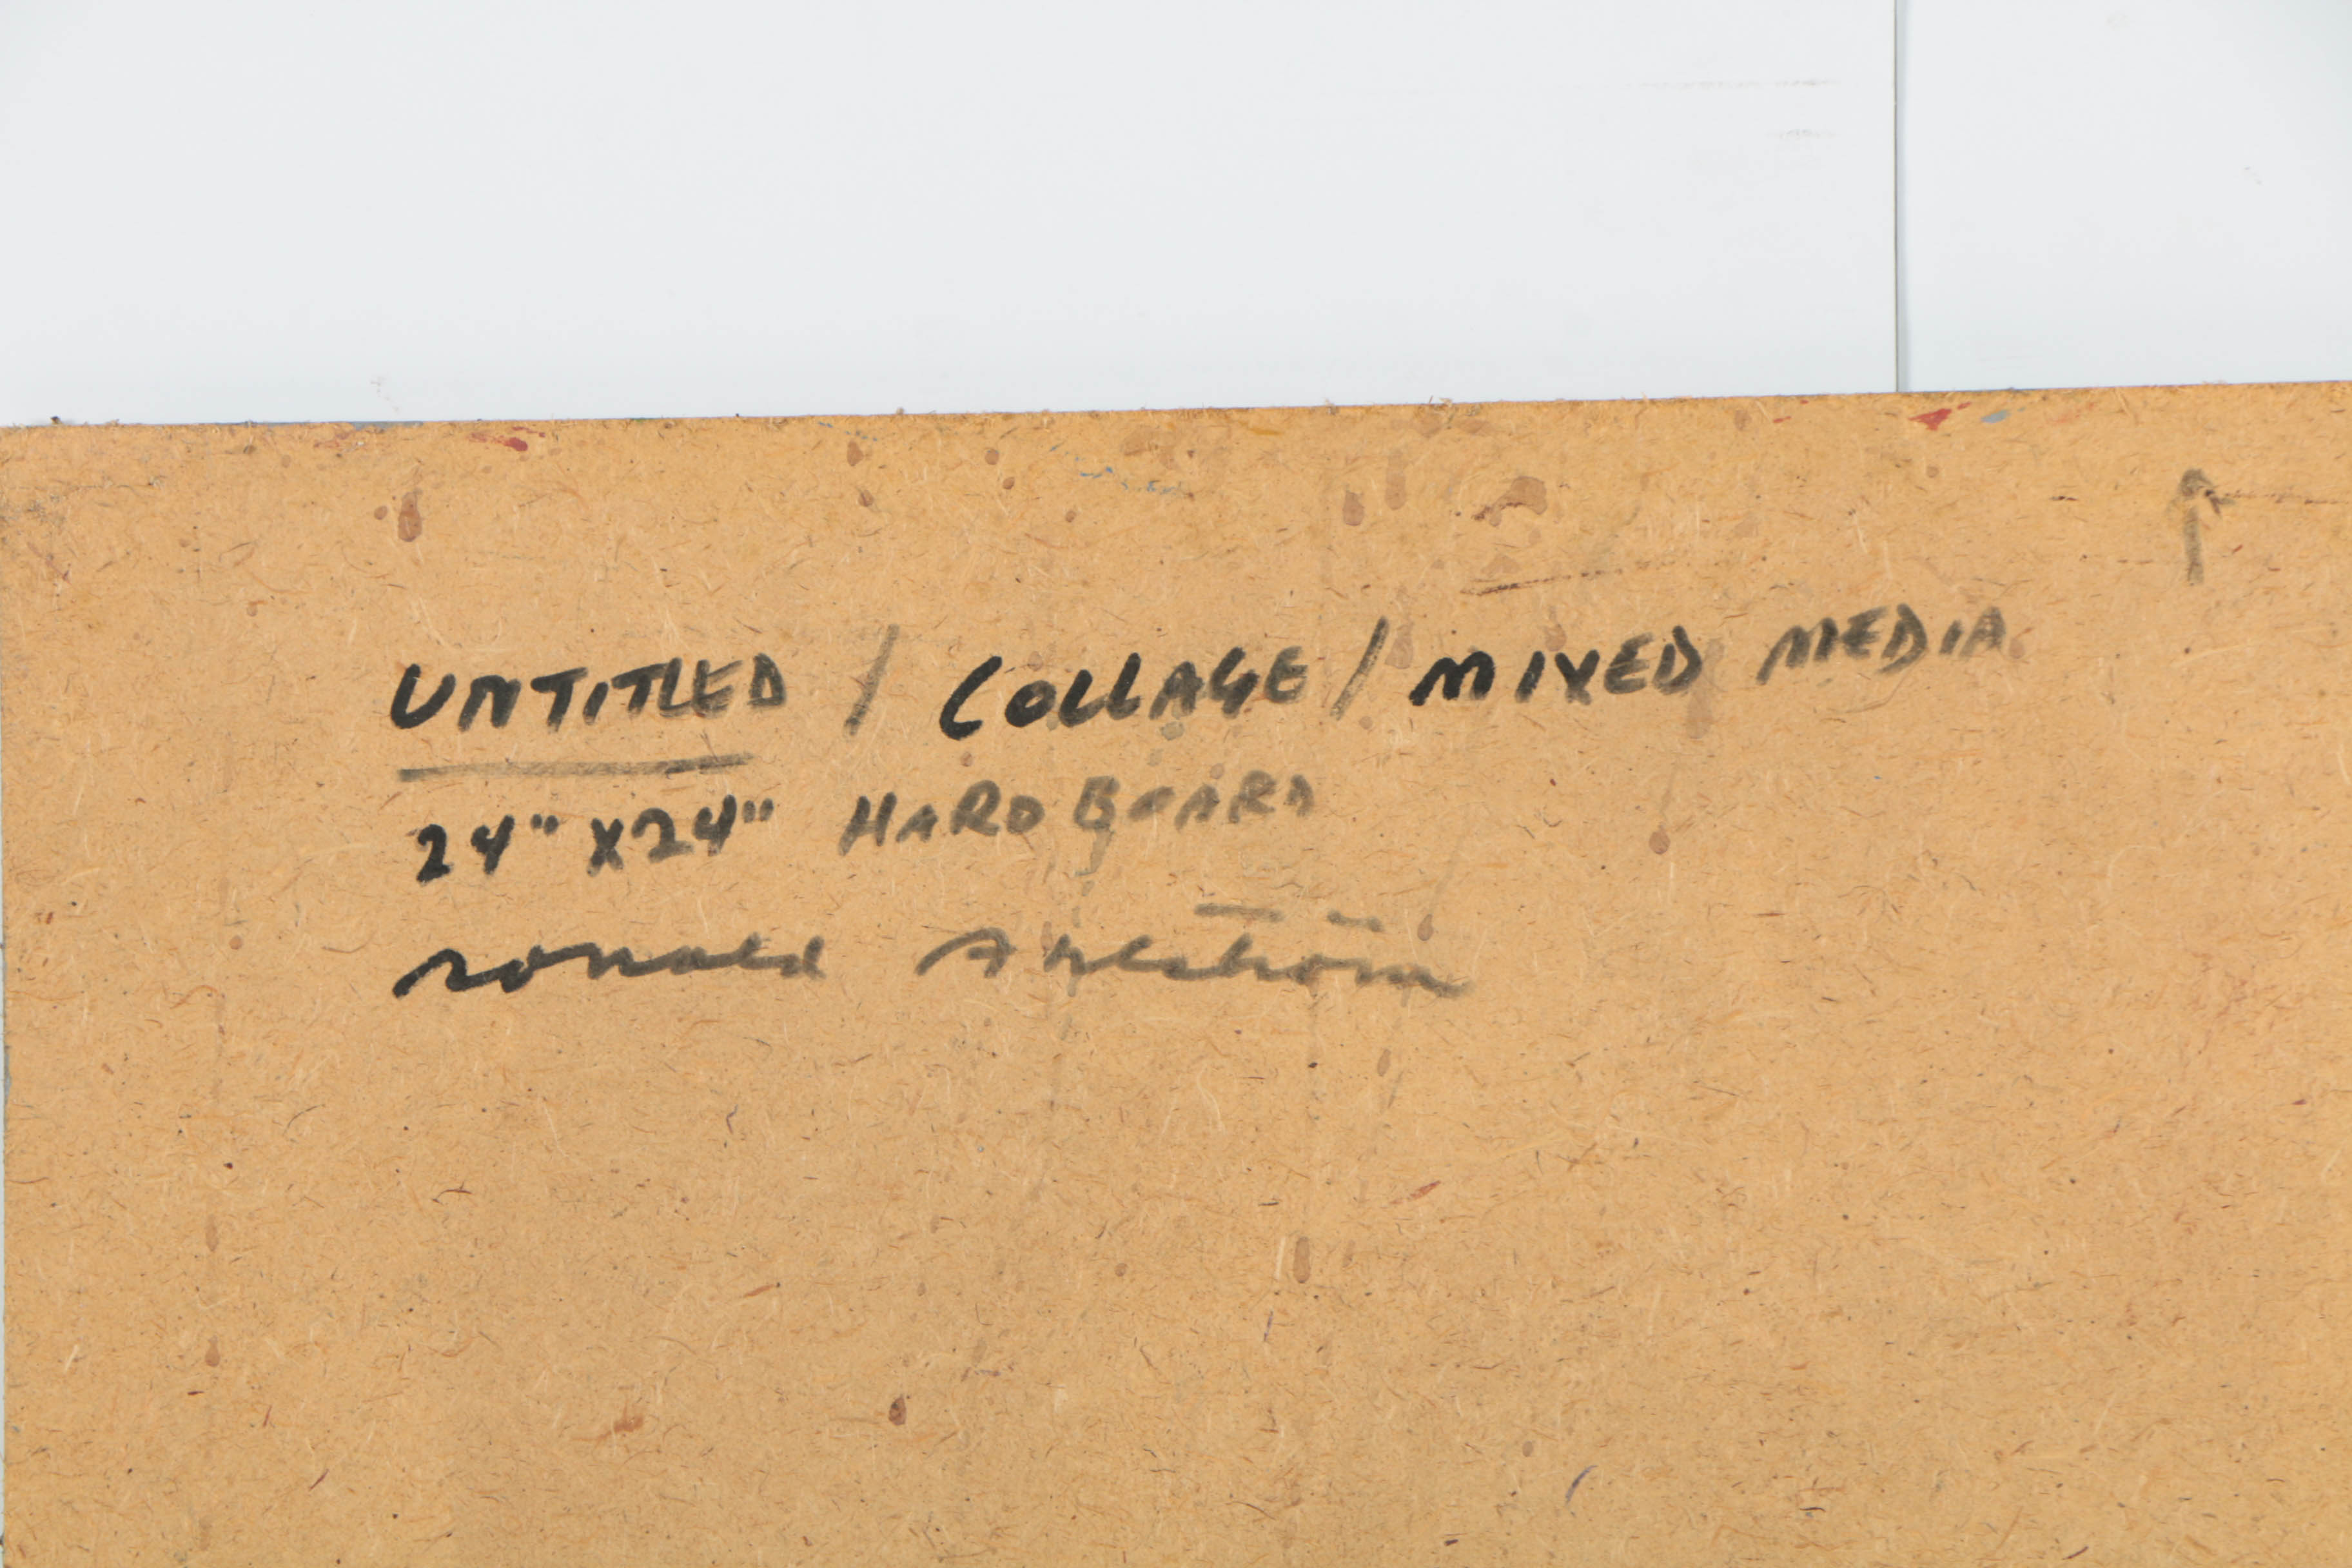 UNTITLED / COLLAGE / MIXED MEDIA
24" X 24" HARDBOARD
ronald Ahlström